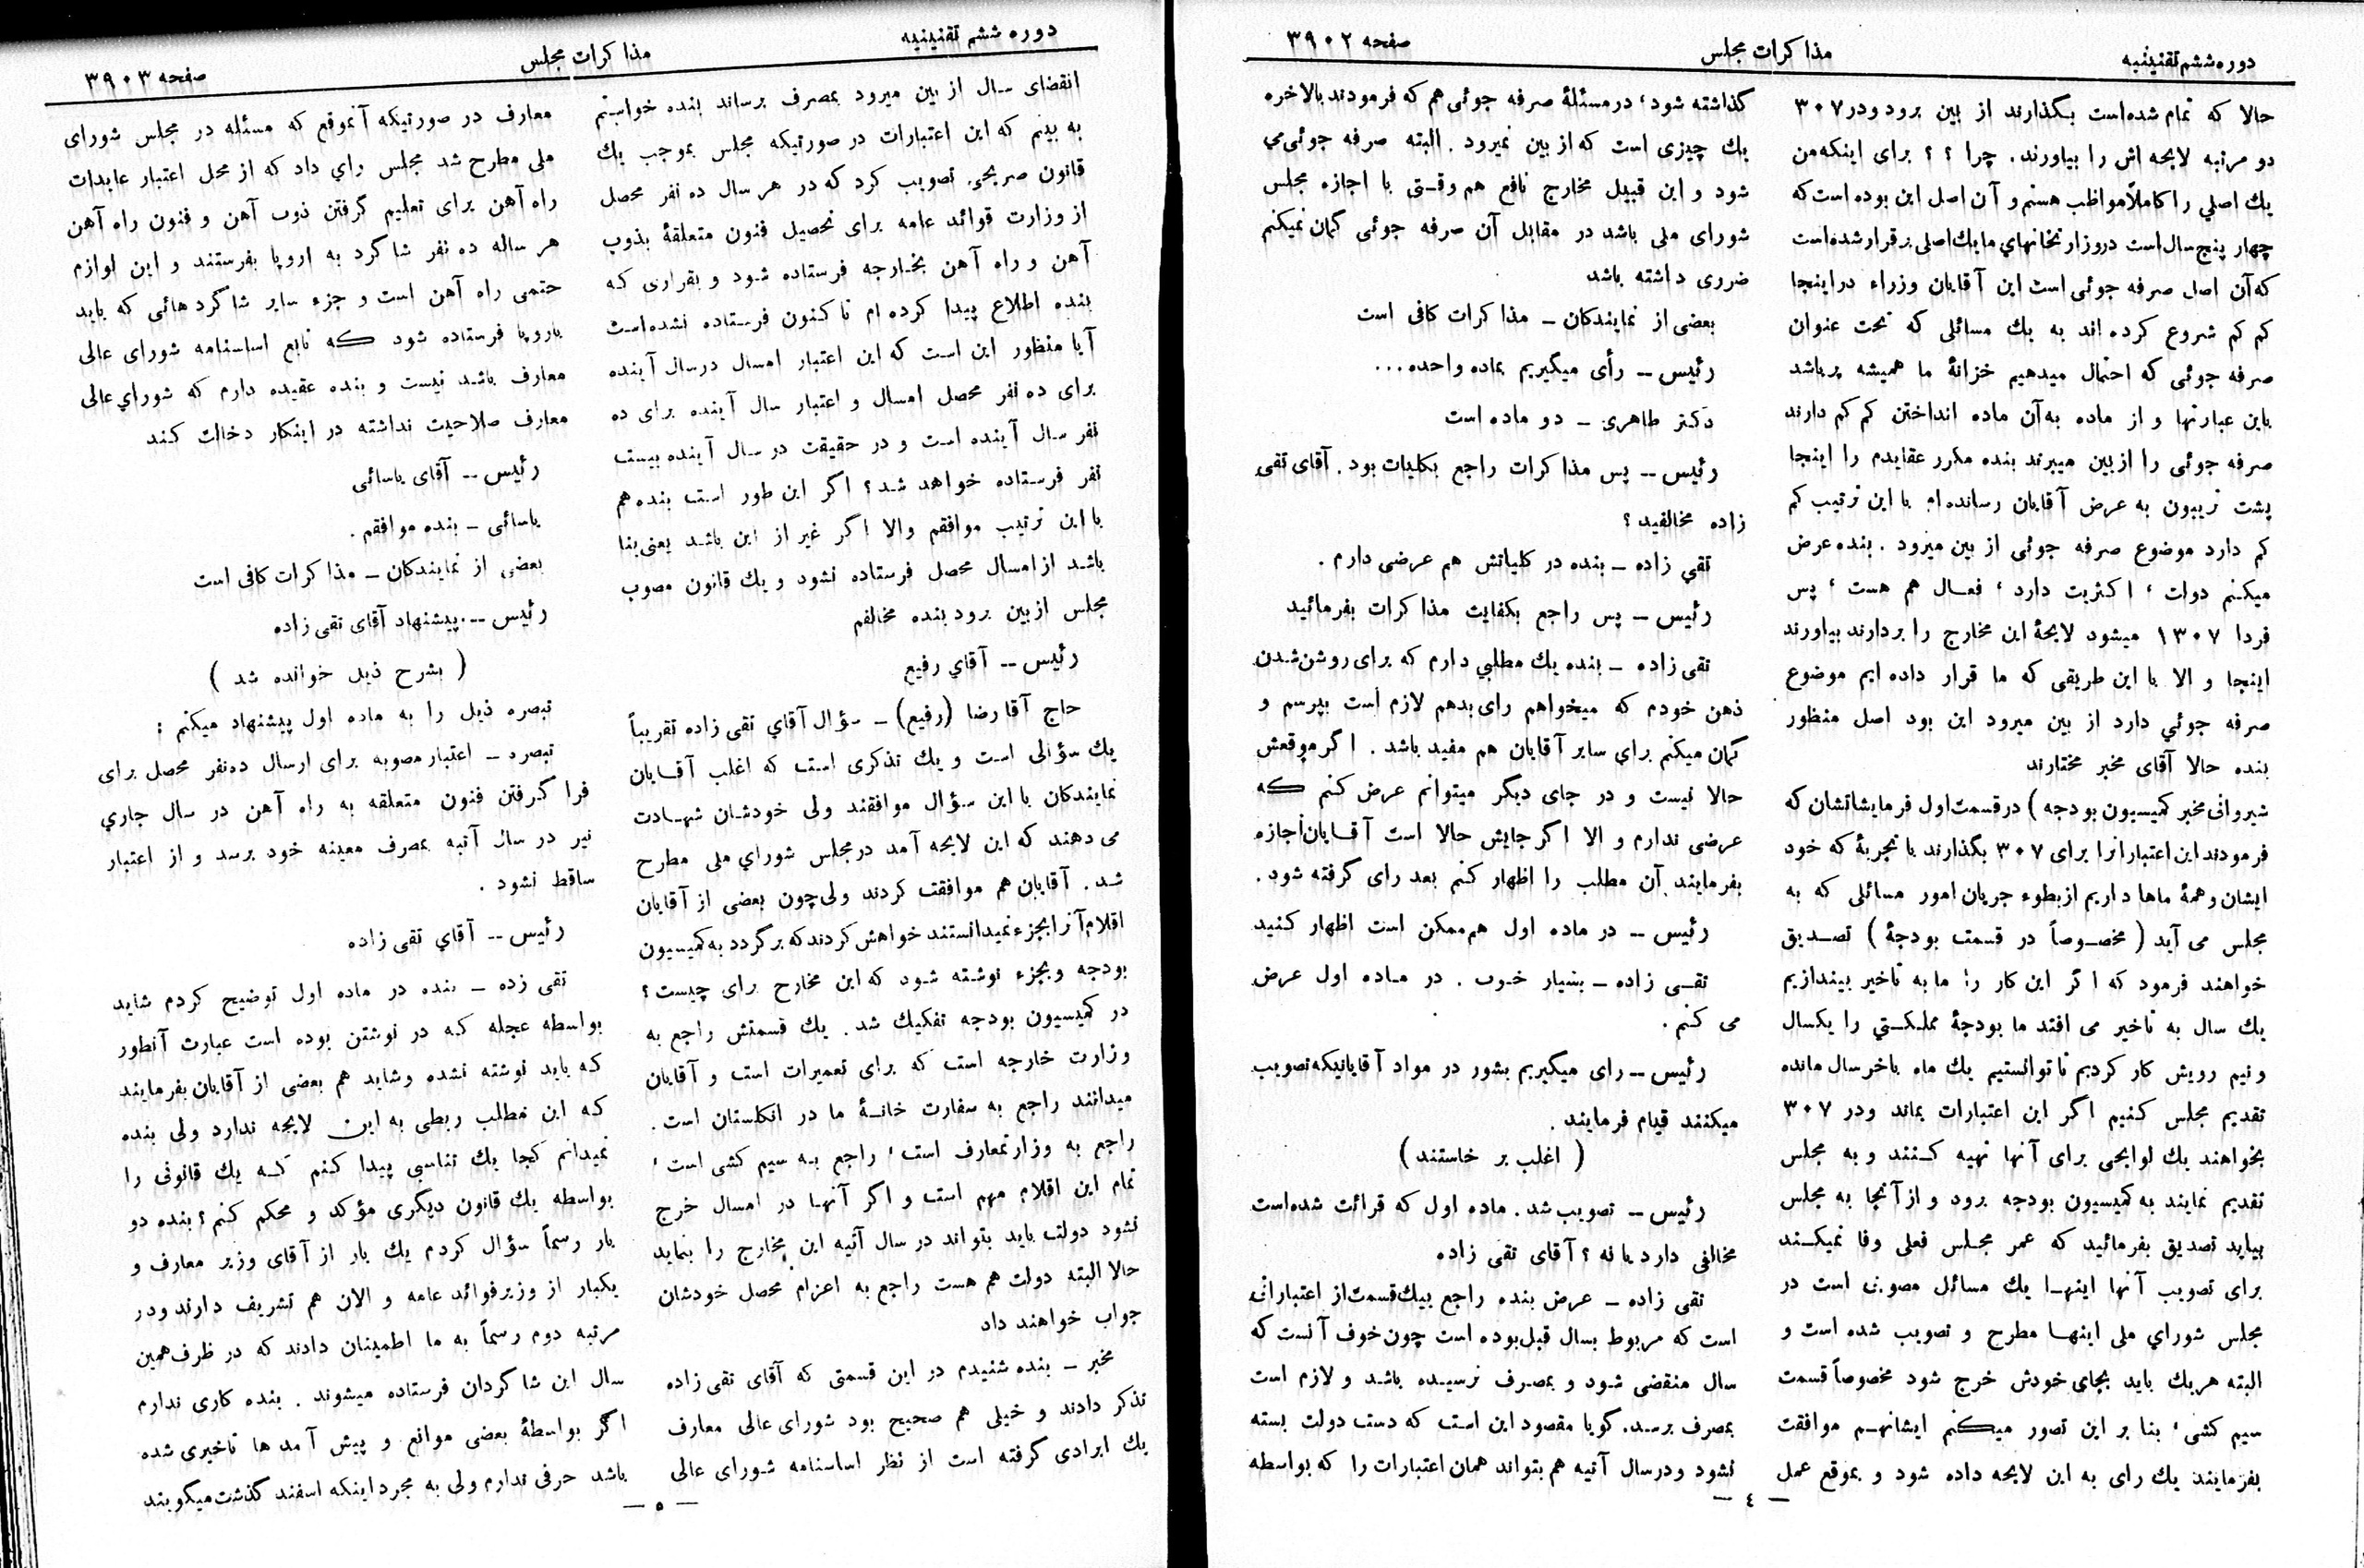 دوره ششم تقنینیه
مذاکرات مجلس
صفحه ۳۹۰۲
حالا که تمام شده‌است بگذارند از بین برود ودر ۳۰۷
دو مرتبه لایحه اش را بیاورند. چرا ؟ ؟ برای اینکه‌من
یك اصلي را کاملاً مواظب هستم و آن اصل این بوده است که
چهار پنج سال است در وزارتخانهاي ما یك اصلی بر قرار شده‌است
که آن اصل صرفه جوئی است این آقایان وزراء در اینجا
کم کم شروع کرده اند به یك مسائلی که تحت عنوان
صرفه جوئی که احتمال میدهیم خزانهٔ ما همیشه پر باشد
باین عبارتها و از ماده به آن ماده انداختن کم کم دارند
صرفه جوئی را از بین میبرند بنده مکرر عقایدم را اینجا
پشت تریبون به عرض آقایان رسانده ام با این ترتیب کم
کم دارد موضوع صرفه جوئی از بین میرود . بنده عرض
میکنم دولت ، اکثریت دارد ، فعال هم هست ، پس
فردا ۱۳۰۷ میشود لایحهٔ این مخارج را بردارند بیاورند
اینجا و الا با این طریقی که ما قرار داده ایم موضوع
صرفه جوئي دارد از بین میرود این بود اصل منظور
بنده حالا آقای مخبر مختارند
شیروانی مخبر کمیسیون بودجه ) در قسمت اول فرمایشاتشان که
فرمودند این اعتبار انرا برای ۳۰۷ بگذارند با تجربهٔ که خود
ایشان و همهٔ ماها داریم از بطوء جریان امور مسائلی که به
مجلس می آید ( مخصوصاً در قسمت بودجهٔ ) تصدیق
خواهند فرمود که اگر این کار را ما به تاخیر بیندازیم
یك سال به تاخیر می افتد ما بودجهٔ مملکتي را یکسال
و نیم رویش کار کردیم تا توانستیم یك ماه باخر سال مانده
تقدیم مجلس کنیم اگر این اعتبارات بماند ودر ۳۰۷
بخواهند یك لوایحی برای آنها تهیه کنند و به مجلس
تقدیم نمایند به کمیسیون بودجه برود و از آنجا به مجلس
بیاید تصدیق بفرمائید که عمر مجلس فعلی وفا نمیکند
برای تصویب آنها اینها یك مسائل مصوبی است در
مجلس شوراي ملی اینها مطرح و تصویب شده است و
البته هریك باید بجای خودش خرج شود مخصوصاً قسمت
سیم کشی ، بنا بر این تصور میکنم ایشانهم موافقت
بفرمایند یك رای به این لایحه داده شود و بموقع عمل
گذاشته شود ، در مسئلهٔ صرفه جوئی هم که فرمودند بالاخره
یك چیزی است که از بین نمیرود . البته صرفه جوئی می
شود و این قبیل مخارج نافع هم وقتی با اجازه مجلس
شورای ملی باشد در مقابل آن صرفه جوئی گمان نمیکنم
ضرری داشته باشد
بعضی از نمایندکان ــ مذاکرات کافی است
رئیس ــ رأی میگیریم بماده واحده...
دکتر طاهری ــ دو ماده است
رئیس ــ پس مذاکرات راجع بکلیات بود . آقای تقی
زاده مخالفید ؟
تقي زاده ــ بنده در کلیاتش هم عرضی دارم .
رئیس ــ پس راجع بکفایت مذاکرات بفرمائید
تقی زاده ــ بنده یك مطلبي دارم که برای روشن شدن
ذهن خودم که میخواهم رای بدهم لازم است بپرسم و
گمان میکنم برای سایر آقایان هم مفید باشد . اگر موقعش
حالا نیست و در جای دیگر میتوانم عرض کنم که
عرضی ندارم و الا اگر جایش حالا است آقایان اجازه
بفرمایند آن مطلب را اظهار کنم بعد رای گرفته شود .
رئیس ــ در ماده اول هم ممکن است اظهار کنید
تقی زاده ــ بسیار خوب . در ماده اول عرض
می کنم .
رئیس ــ رای میگیریم بشور در مواد آقایانیکه تصویب
میکنند قیام فرمایند .
( اغلب بر خاستند )
رئیس ــ تصویب شد . ماده اول که قرائت شده‌است
مخالفی دارد یا نه ؟ آقای تقی زاده
تقی زاده ــ عرض بنده راجع بیك قسمت از اعتباراتی
است که مربوط بسال قبل بوده است چون خوف آنست که
سال منقضی شود و بمصرف نرسیده باشد و لازم است
بمصرف برسد. گویا مقصود این است که دست دولت بسته
نشود ودرسال آتیه هم بتواند همان اعتبارات را که بواسطه
— ٤ —
دوره ششم تقنینیه
مذاکرات مجلس
صفحه ۳۹۰۳
انقضای سال از بین میرود بمصرف برساند بنده خواستم
به بینم که این اعتبارات در صورتیکه مجلس بموجب یك
قانون صریحی تصویب کرد که در هر سال ده نفر محصل
از وزارت فوائد عامه برای تحصیل فنون متعلقهٔ بذوب
آهن و راه آهن بخارجه فرستاده شود و بقراری که
بنده اطلاع پیدا کرده ام تا کنون فرستاده نشده است
آیا منظور این است که این اعتبار امسال درسال آینده
برای ده نفر محصل امسال و اعتبار سال آینده برای ده
نفر سال آینده است و در حقیقت در سال آینده بیست
نفر فرستاده خواهد شد ؟ اگر این طور است بنده هم
با این ترتیب موافقم والا اگر غیر از این باشد یعنی بنا
باشد از امسال محصل فرستاده نشود و یك قانون مصوب
مجلس از بین برود بنده مخالفم
رئیس ــ آقاي رفیع
حاج آقا رضا (رفیع) ــ سؤال آقاي تقی زاده تقریباً
یك سؤالی است و یك تذکری است که اغلب آقایان
نمایندکان با این سؤال موافقند ولی خودشان شهادت
می دهند که این لایحه آمد در مجلس شوراي ملی مطرح
شد . آقایان هم موافقت کردند ولی چون بعضی از آقایان
اقلام آنرا بجزء نمیدانستند خواهش کردند که برگردد به کمیسیون
بودجه و بجزء نوشته شود که این مخارج برای چیست ؟
در کمیسیون بودجه تفکیك شد . یك قسمتش راجع به
وزارت خارجه است که برای تعمیرات است و آقایان
میدانند راجع به سفارت خانهٔ ما در انگلستان است .
راجع به وزارتمعارف است ، راجع به سیم کشی است ،
تمام این اقلام مهم است و اگر آنها در امسال خرج
نشود دولت باید بتواند در سال آتیه این مخارج را بنماید
حالا البته دولت هم هست راجع به اعزام محصل خودشان
جواب خواهند داد
مخبر ــ بنده شنیدم در این قسمتی که آقای تقی زاده
تذکر دادند و خیلی هم صحیح بود شورای عالی معارف
یك ایرادی گرفته است از نظر اساسنامه شورای عالی
معارف در صورتیکه آنموقع که مسئله در مجلس شورای
ملی مطرح شد مجلس راي داد که از محل اعتبار عایدات
راه آهن برای تعلیم گرفتن ذوب آهن و فنون راه آهن
هر ساله ده نفر شاگرد به اروپا بفرستند و این لوازم
حتمی راه آهن است و جزء سایر شاگرد هائی که باید
باروپا فرستاده شود که تابع اساسنامه شورای عالی
معارف باشد نیست و بنده عقیده دارم که شوراي عالی
معارف صلاحیت نداشته در اینکار دخالت کند
رئیس ــ آقای یاسائی
یاسائی ــ بنده موافقم .
بعضی از نمایندکان ــ مذاکرات کافی است
رئیس ــ پیشنهاد آقای تقی زاده
( بشرح ذیل خوانده شد )
تبصره ذیل را به ماده اول پیشنهاد میکنم :
تبصره ــ اعتبار مصوبه برای ارسال ده نفر محصل برای
فرا گرفتن فنون متعلقه به راه آهن در سال جاري
نیز در سال آتیه بمصرف معینه خود برسد و از اعتبار
ساقط نشود .
رئیس ــ آقاي تقی زاده
تقی زده ــ بنده در ماده اول توضیح کردم شاید
بواسطه عجله که در نوشتن بوده است عبارت آنطور
که باید نوشته نشده وشاید هم بعضی از آقایان بفرمایند
که این مطلب ربطی به این لایحه ندارد ولی بنده
نمیدانم کجا یك تناسبی پیدا کنم که یك قانونی را
بواسطه یك قانون دیگری مؤکد و محکم کنم ؛ بنده دو
بار رسماً سؤال کردم یك بار از آقای وزیر معارف و
یکبار از وزیر فوائد عامه و الان هم تشریف دارند ودر
مرتبه دوم رسماً به ما اطمینان دادند که در ظرف همین
سال این شاگردان فرستاده میشوند . بنده کاری ندارم
اگر بواسطهٔ بعضی موانع و پیش آمد ها تاخیری شده
باشد حرفی ندارم ولی به مجرد اینکه اسفند گذشت میگویند
— ٥ —